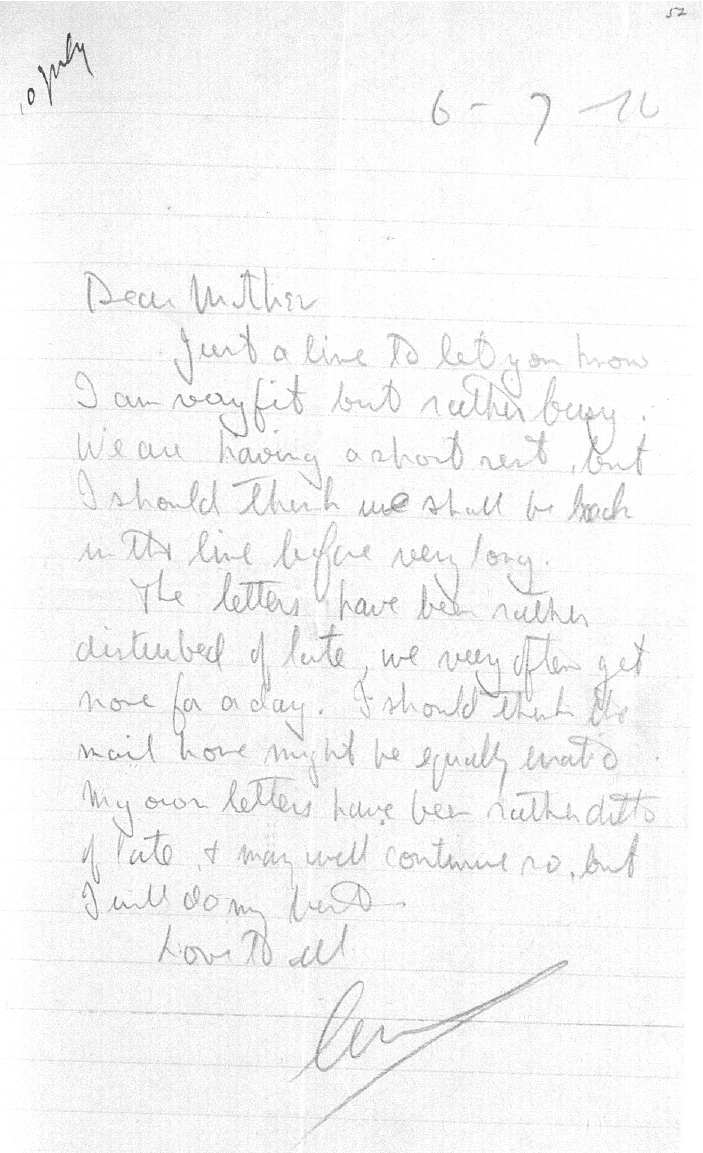 52
10 July
6 - 7 - 16
Dear Mother
Just a line to let you know
I am very fit but rather busy.
We are having a short rest, but
I should think we shall be back
in the line before very long.
The letters have been rather
disturbed of late, we very often get
none for a day. I should think the
mail home might be equally erratic
My own letters have been rather ditto
of late, & may well continue so, but
I will do my best
Love to all